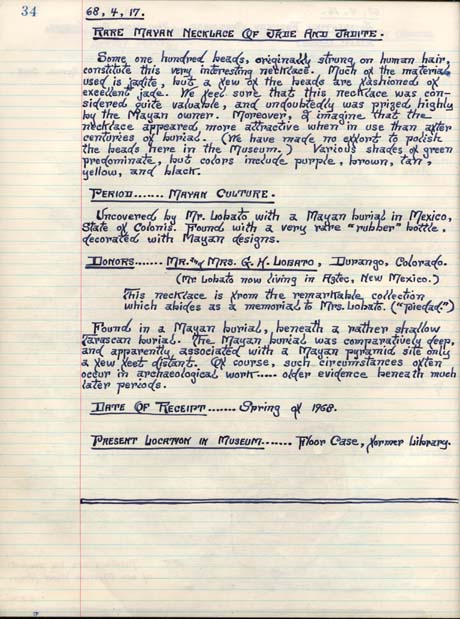 34
68, 4, 17.
RARE MAYAN NECKLACE OF JADE AND JADITE.
Some one hundred beads, originally strung on human hair,
constitute this very interesting necklace. Much of the material
used is jadite, but a few of the beads are fashioned of
excellent jade. We feel sure that this necklace was con-
sidered quite valuable, and undoubtedly was prized highly
by the Mayan owner. Moreover, I imagine that the
necklace appeared more attractive when in use than after
centuries of burial. (We have made no effort to polish
the beads here in the Museum.) Various shades of green
predominate, but colors include purple, brown, tan,
yellow, and black.
PERIOD....... MAYAN CULTURE.
Uncovered by Mr. Lobato with a Mayan burial in Mexico,
State of Colonis. Found with a very rare "rubber" bottle,
decorated with Mayan designs.
DONORS...... MR. and MRS. G. H. LOBATO, Durango, Colorado.
(Mr Lobato now living in Aztec, New Mexico.)
This necklace is from the remarkable collection
which abides as a memorial to Mrs. Lobato. ("Piedad.")
Found in a Mayan burial, beneath a rather shallow
Tarascan burial. The Mayan burial was comparatively deep,
and apparently associated with a Mayan pyramid site only
a few feet distant. Of course, such circumstances often
occur in archaeological work..... older evidence beneath much
later periods.
DATE OF RECEIPT....... Spring of 1968.
PRESENT LOCATION IN MUSEUM....... Floor Case, former Library.